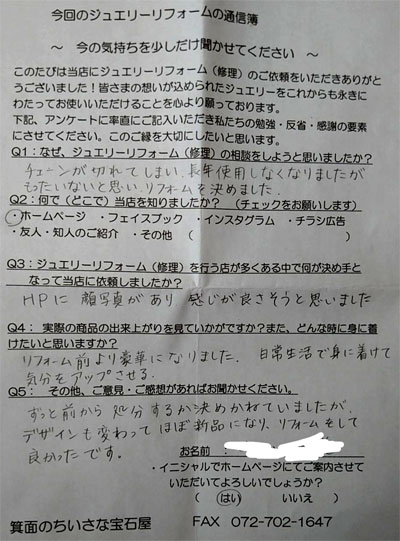 今回のジュエリーリフォームの通信簿
～ 今の気持ちを少しだけ聞かせてください ～
このたびは当店にジュエリーリフォーム(修理)のご依頼をいただきありがと
うございました！皆さまの想いが込められたジュエリーをこれからも永きに
わたってお使いいただけることを心より願っております。
下記、アンケートに率直にご記入いただき私たちの勉強・反省・感謝の要素
にさせてください。このご縁を大切にしたいと思います。
Q1：なぜ、ジュエリーリフォーム(修理)の相談をしようと思いましたか？
チェーンが切れてしまい、長年使用しなくなりましたが
もったいないと思い、リフォームを決めました。
Q2：何で(どこで)当店を知りましたか？ (チェックをお願いします)
・ホームページ ・フェイスブック ・インスタグラム ・チラシ広告
・友人・知人のご紹介 ・その他 ( )
Q3：ジュエリーリフォーム(修理)を行う店が多くある中で何が決め手と
なって当店に依頼しましたか？
HPに 顔写真があり 感じが良さそうと思いました
Q4： 実際の商品の出来上がりを見ていかがですか？また、どんな時に身に着
けたいと思いますか？
リフォーム前より豪華になりました。 日常生活で身に着けて
気分をアップさせる。
Q5： その他、ご意見・ご感想があればお聞かせください。
ずっと前から 処分するか決めかねていましたが、
デザインも変わって ほぼ新品になり、リフォームをして
良かったです。
お名前：
・イニシャルでホームページにてご案内させて
いただいてよろしいでしょうか？
( はい いいえ )
箕面のちいさな宝石屋 FAX 072-702-1647